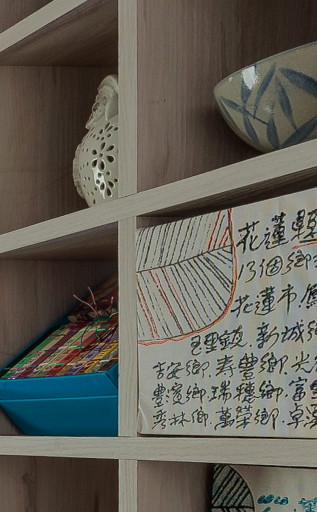 花蓮輕
13個鄉
花蓮市.鳳
玉里鎮.新城鄉
吉安鄉.壽豐鄉.光
豐濱鄉.瑞穗鄉.富里
秀林鄉.萬榮鄉.卓溪